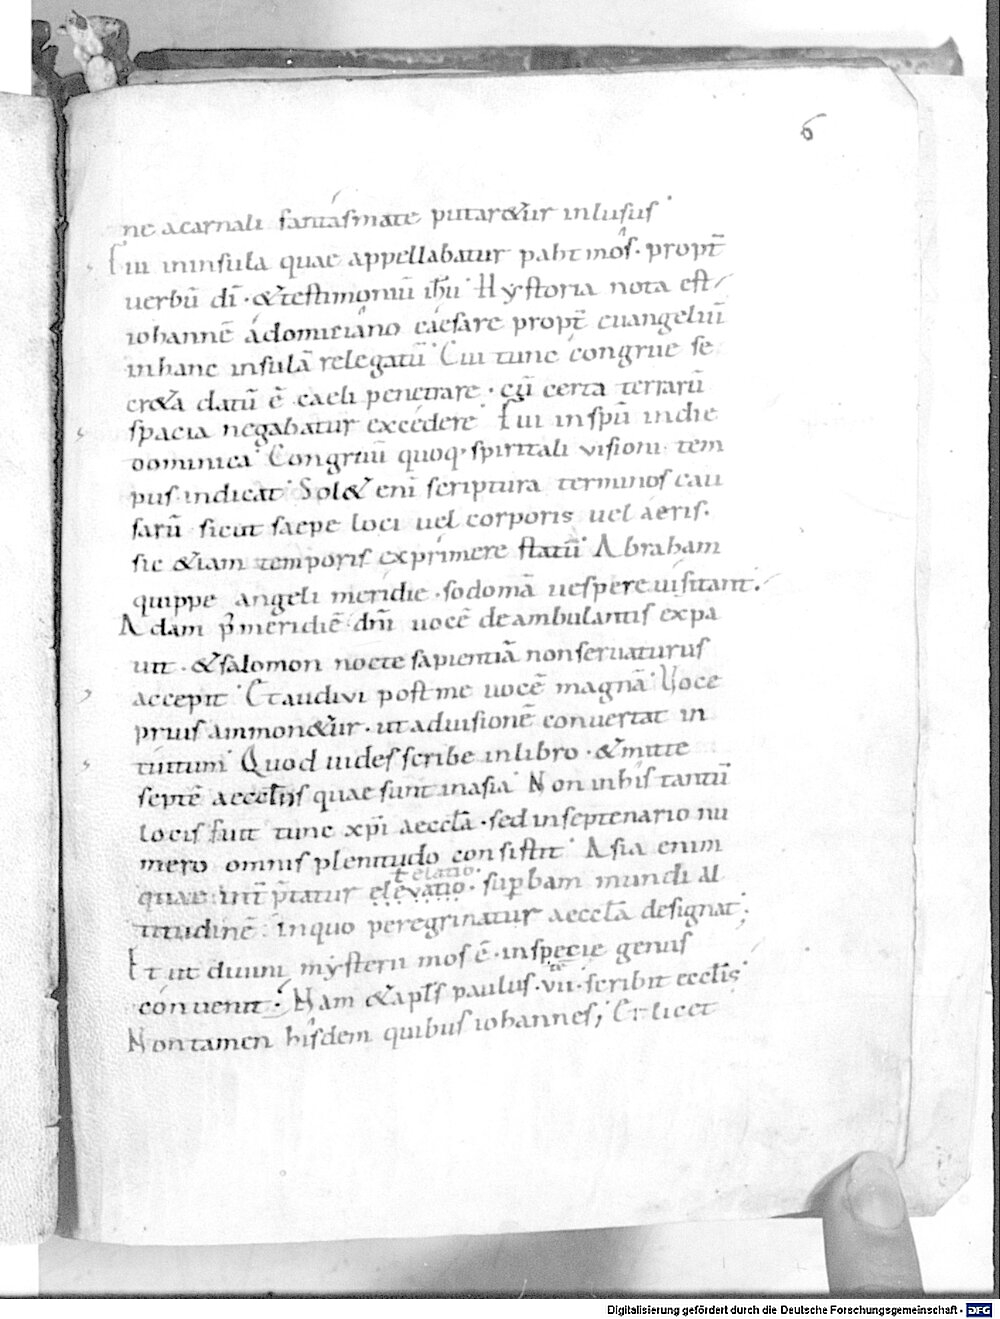 6
ne a carnali fantasmate putar&ur inlusus
Fui ininsula quae appellabatur pahtmos. propt̄
uerbū dī · & testimoniū ih̄u Hystoria nota est
iohannē a domiciano caesare propt̄ euangeliū
inhanc insulā relegatū Cui tunc congrue se
cr&a datū ē caeli penetrare · cū certa terrarū
spacia negabatur excedere Fui inspū indie
dominica Congruū quoq· spiritali visioni tem
pus indicat Sol& enī scriptura terminos cau
sarū sicut saepe loci uel corporis uel aeris.
sic &iam temporis exprimere statū Abraham
quippe angeli meridie · sodomā uespere uisitant.
Adam p̄ meridiē dn̄i uocē deambulantis expa
uit · & salomon nocte sapientiā non seruaturus
accepit Et audivi post me uocē magnā Uoce
prius ammon&ur · ut aduisionē conuertat in
tuitum Quod uides scribe inlibro · & mitte
septē aecclīis quae sunt inasia Non inhis tantū
locis fuit tunc xp̄i aeccła · sed inseptenario nu
mero omnis plenitudo consistit Asia enim
ł elatio
quae int̄ p̄tatur elevatio · supbam mundi al
titudinē : inquo peregrinatur aeccła designat;
Et ut diuini mysterii mos ē · inspecie genus
conuenit · Nam & apłs paulus · vii · scribit eccłis
Non tamen hisdem quibus iohannes; Et licet
Digitalisierung gefördert durch die Deutsche Forschungsgemeinschaft - DFG